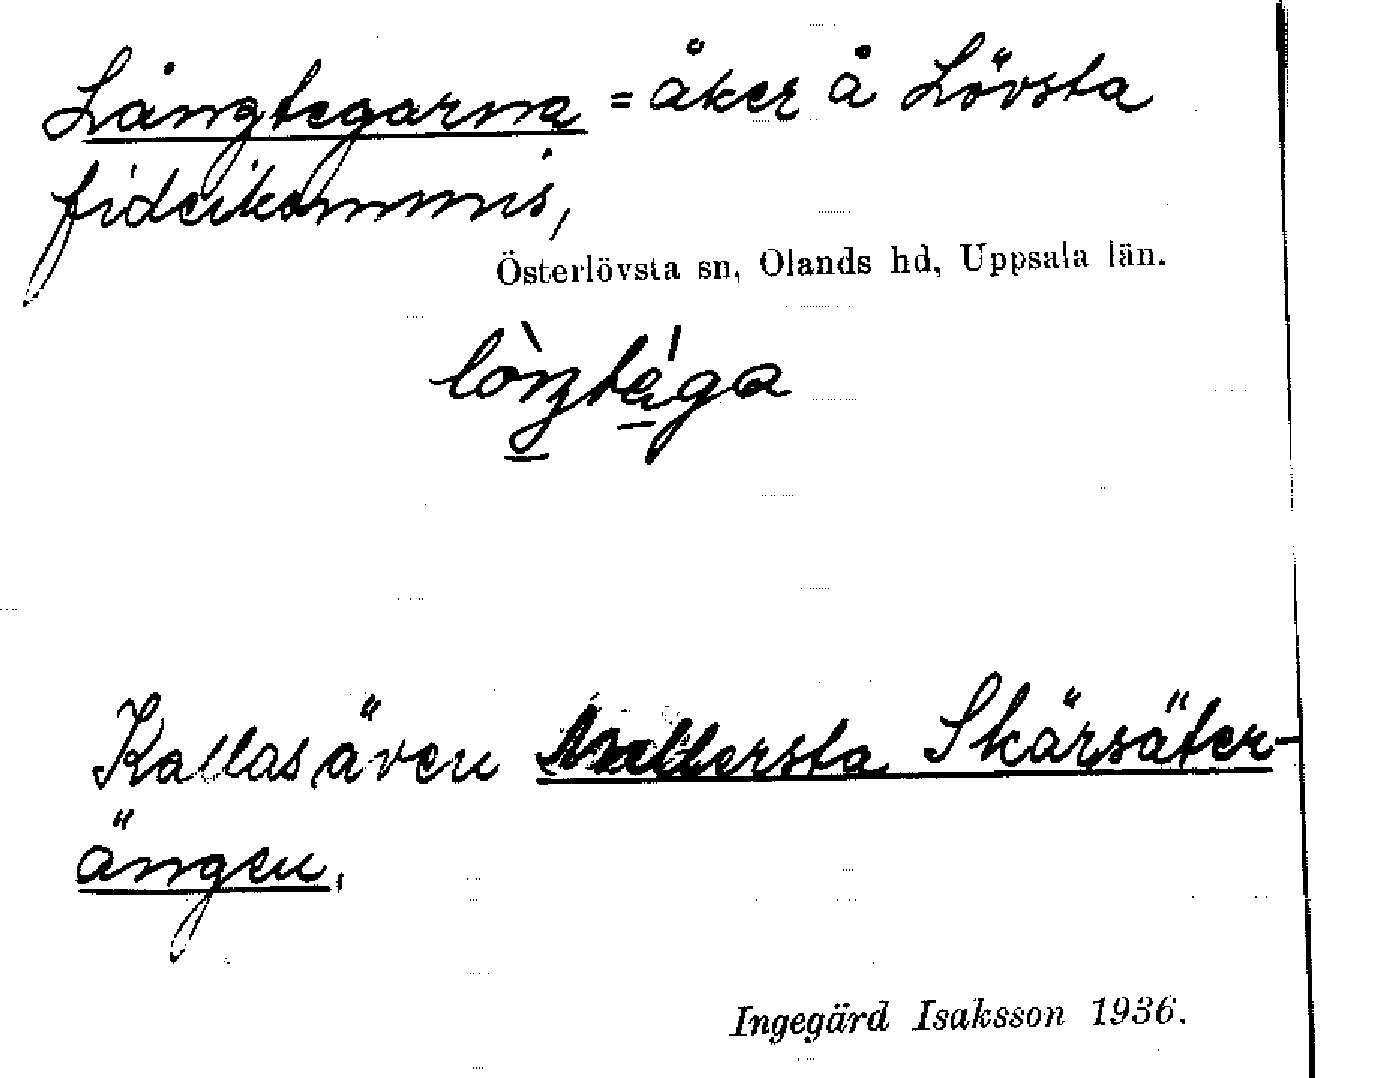 Långtegarna = åker å Lövsta
fideikommis,
Österlövsta sn, Olands hd, Uppsala län.
lòŋtéga
Kallas även Mellersta Skärsäter-
ängen.
Ingegärd Isaksson 1936.